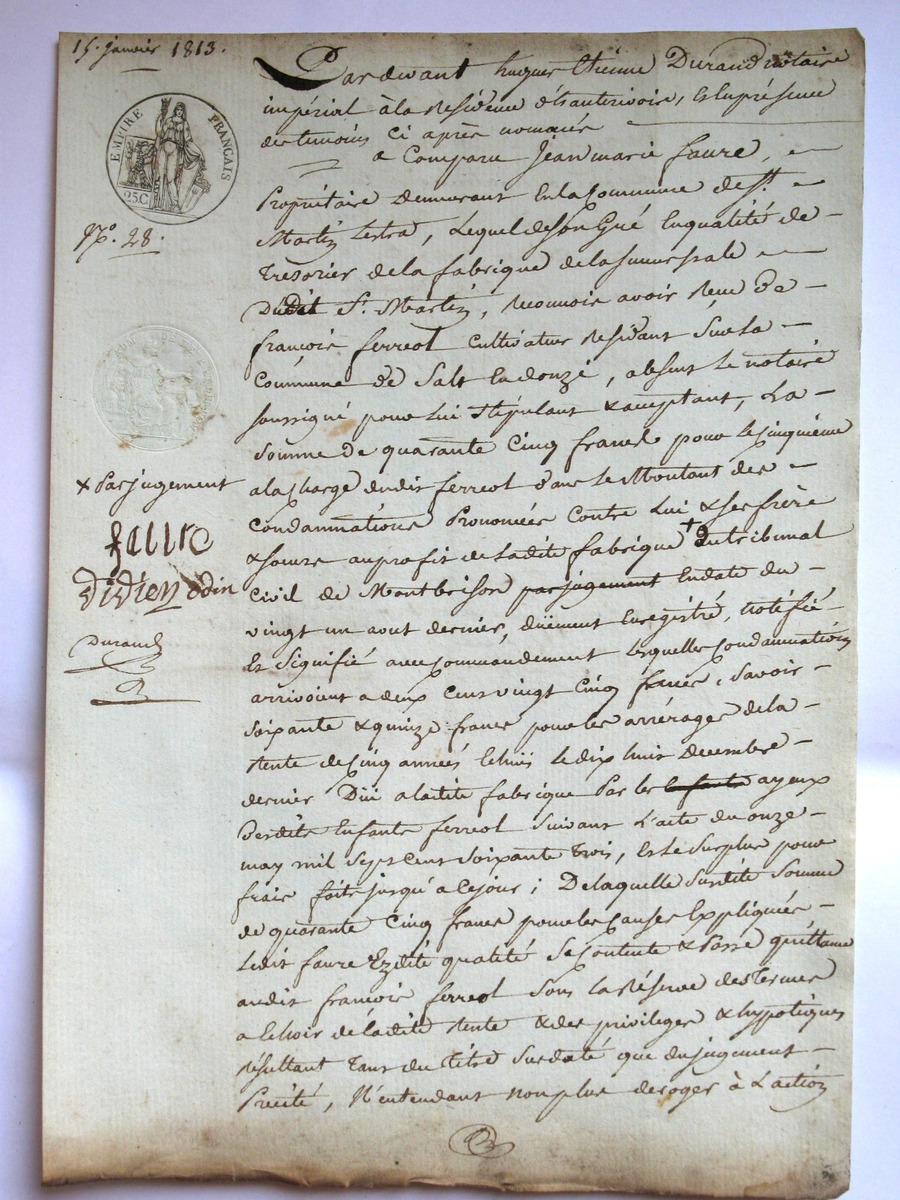 15. janvier 1813.
EMPIRE FRANÇAIS
25C
N.º 28.
Pardevant hugues Etienne Durand notaire
impérial à la Résidence d'hauterivoire, & En présence
des temoins ci après nommés
a Comparu Jean marie faure,
Propriétaire demeurant En la Commune de St.
Martin Lestra, Lequel de son Gré En qualité de
Trésorier de la fabrique de la succursale
Dudit St. Martin, reconnoit avoir Reçu de
françois ferreol Cultivateur Résidant Sur la
Commune de Salt En donzi, absent Le notaire
soussigné pour Lui Stipulant & acceptant, La
Somme de quarante Cinq francs pour le Cinquième
a la Charge dudit ferreol dans Le Montant des
Condamnations Prononcées Contre Lui & ses frère
& soeurs au profit de Ladite fabrique + du tribunal
Civil de Montbrison par jugement En date du
vingt un aout dernier, düement Enregistré, notifié
Et Signifié avec Commandement Lesquelles Condamnations
arrivoient a deux Cent vingt Cinq francs, savoir
soixante & quinze francs pour les arrérages de la
Rente de Cinq années Echuës Le dix huit Decembre
dernier Düe a ladite fabrique Par les Enfants ayeux
Desdits Enfants ferreol Suivant L'acte du onze
may mil Sept Cent Soixante Trois, Et le Surplus pour
frais faits jusqu'a Ce jour; De laquelle Susdite Somme
de quarante Cinq francs pour les Causes Expliquées
Ledit faure Ezdite qualité Se Contente & Passe quittance
audit françois ferreol Sous La Réserve des Termes
a Echoir de Ladite Rente & des privileges & hypotèques
Résultant Tant du Titre Susdaté que du jugement
Précité, N'entendant non plus deroger à L'action
x Par jugement
faure
Didier odin
Durand